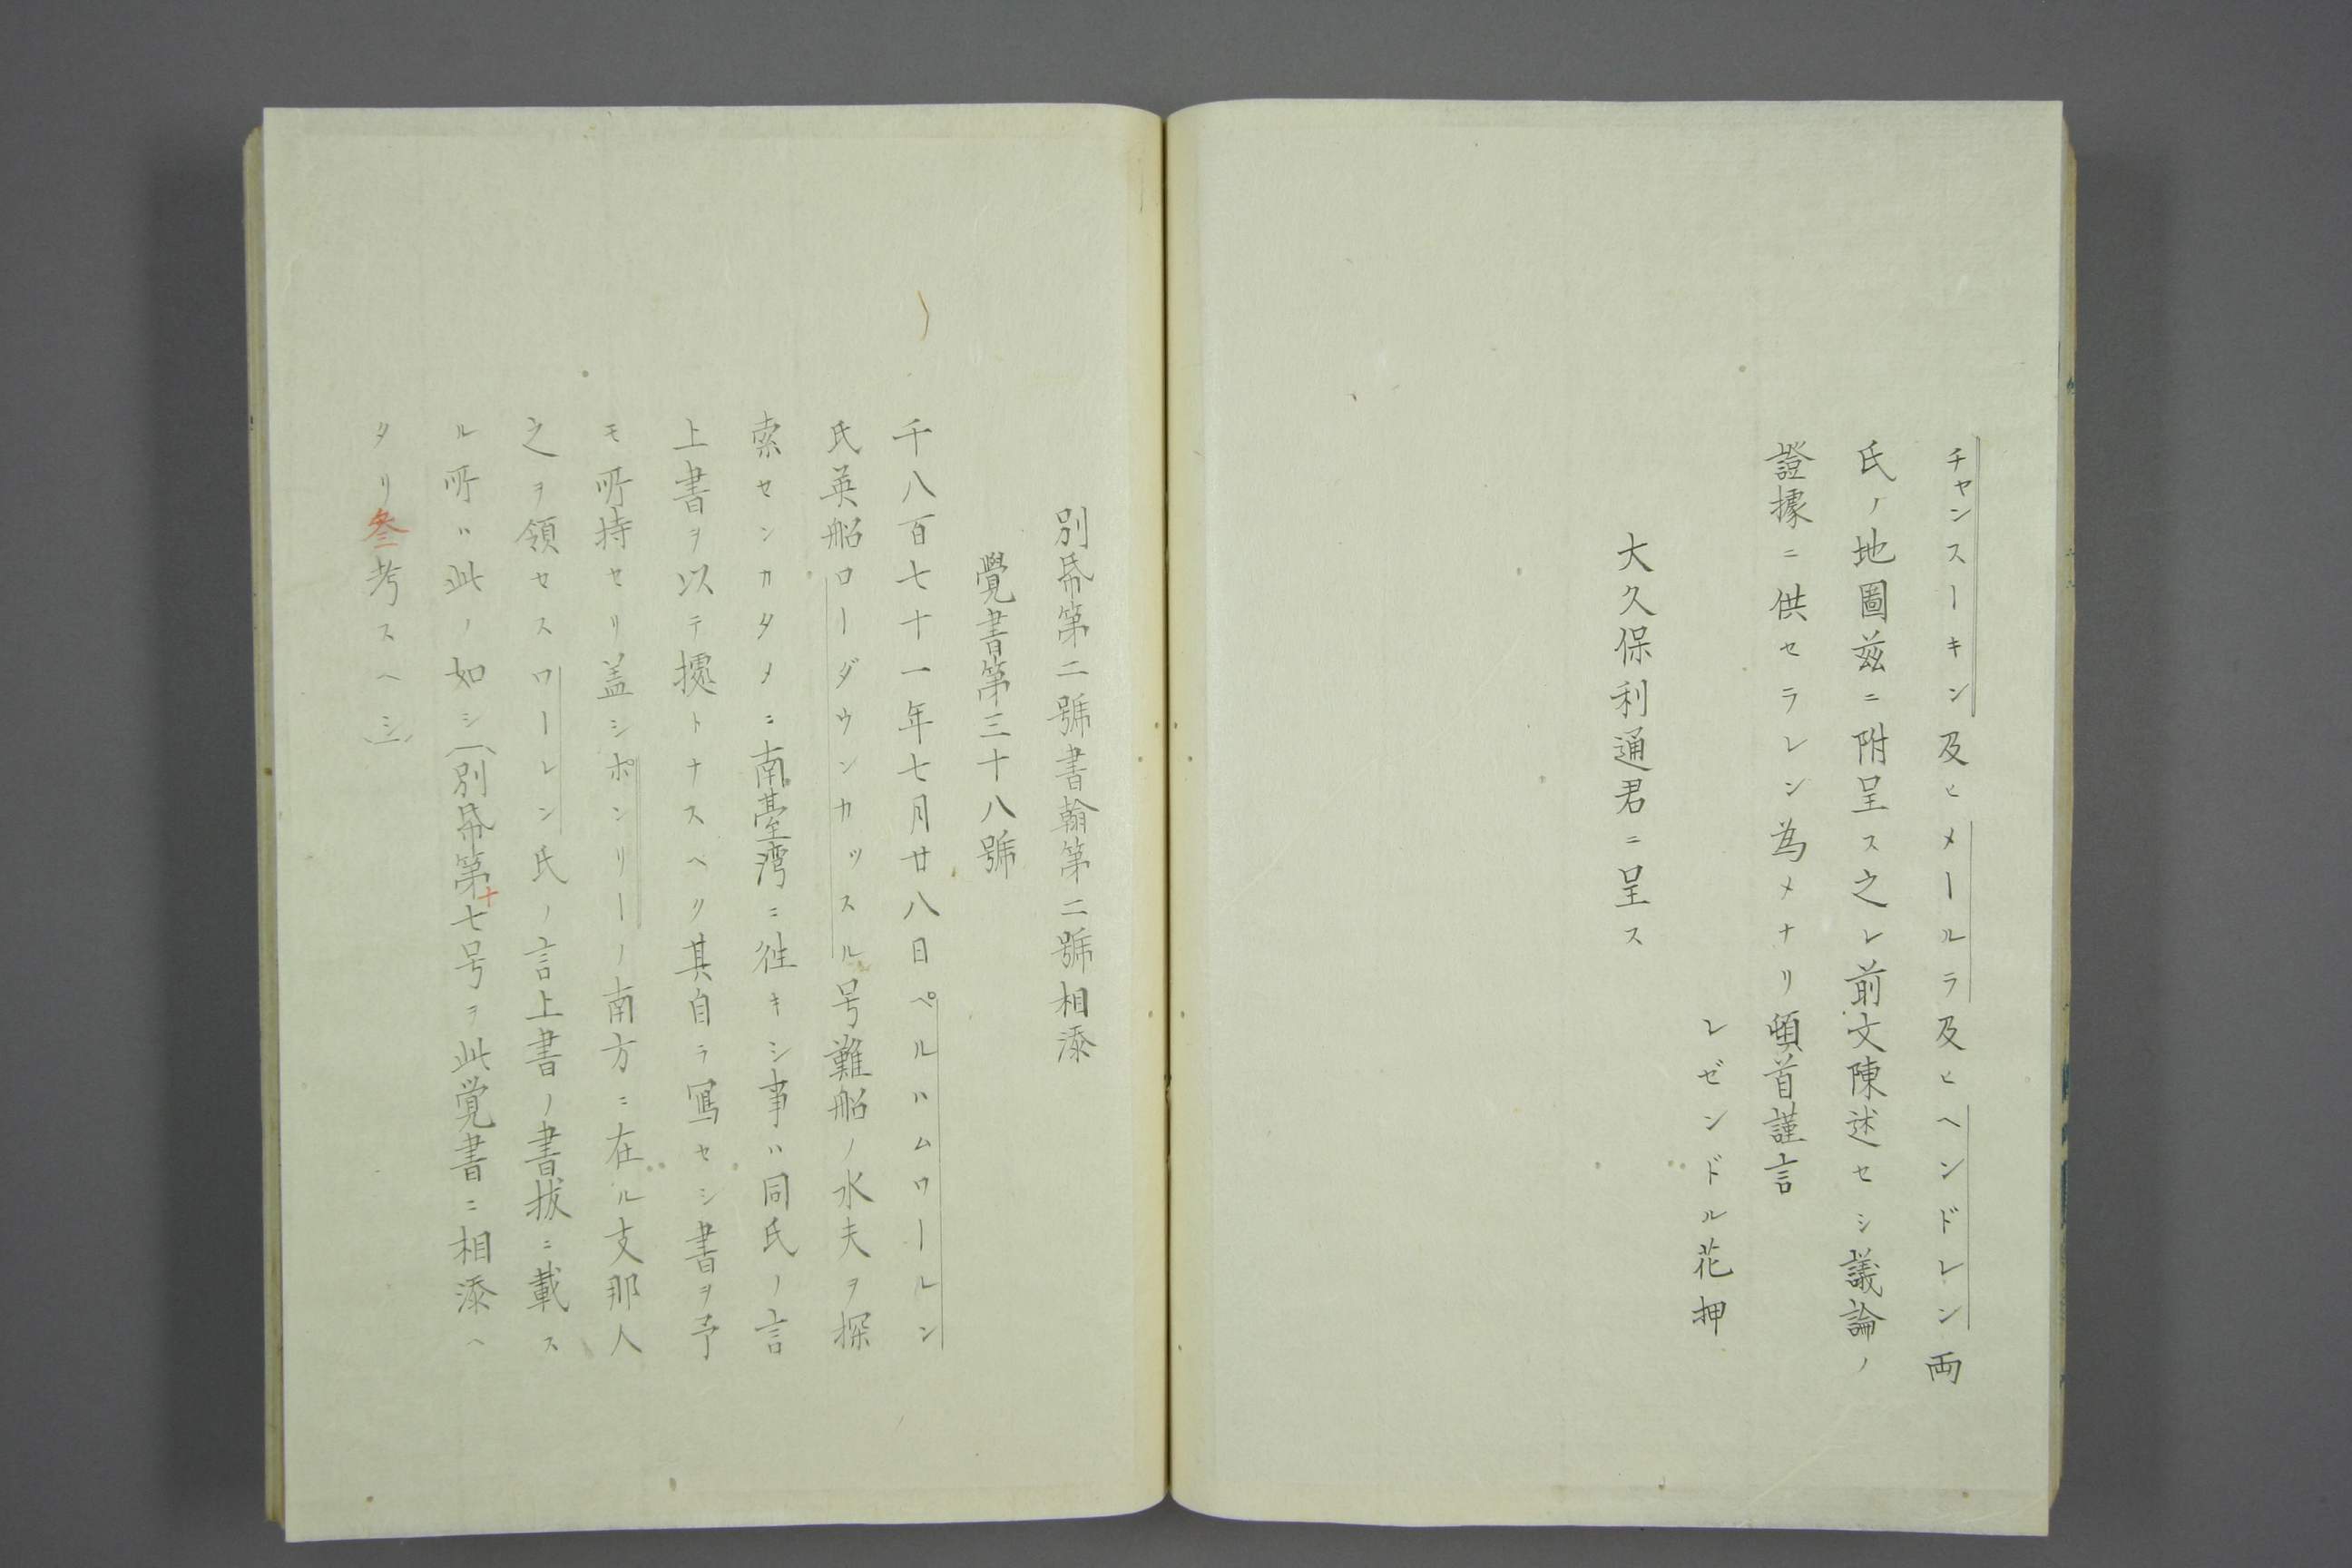 チャンスーキン及ヒメールラ及ヒヘンドレン両
氏ノ地圖茲ニ附呈ス之レ前文陳述セシ議論ノ
證據ニ供セラレン為メナリ頓首謹言
レゼンドル花押
大久保利通君ニ呈ス
別帋第二號書翰第二號相添
覺書第三十八號
千八百七十一年七月廿八日ペルハムワールン
氏英船ローダウンカッスル号難船ノ水夫ヲ探
索センカタメニ南臺湾ニ徃キシ事ハ同氏ノ言
上書ヲ以テ據トナスヘリ其自ラ寫セシ書ヲ予
モ所持セリ盖シポンリーノ南方ニ在ル支那人
之ヲ領セスワーレン氏ノ言上書ノ書抜ニ載ス
ル所ハ此ノ如シ(別帋第十七号ヲ此覚書ニ相添ヘ
タリ叄考スヘシ)